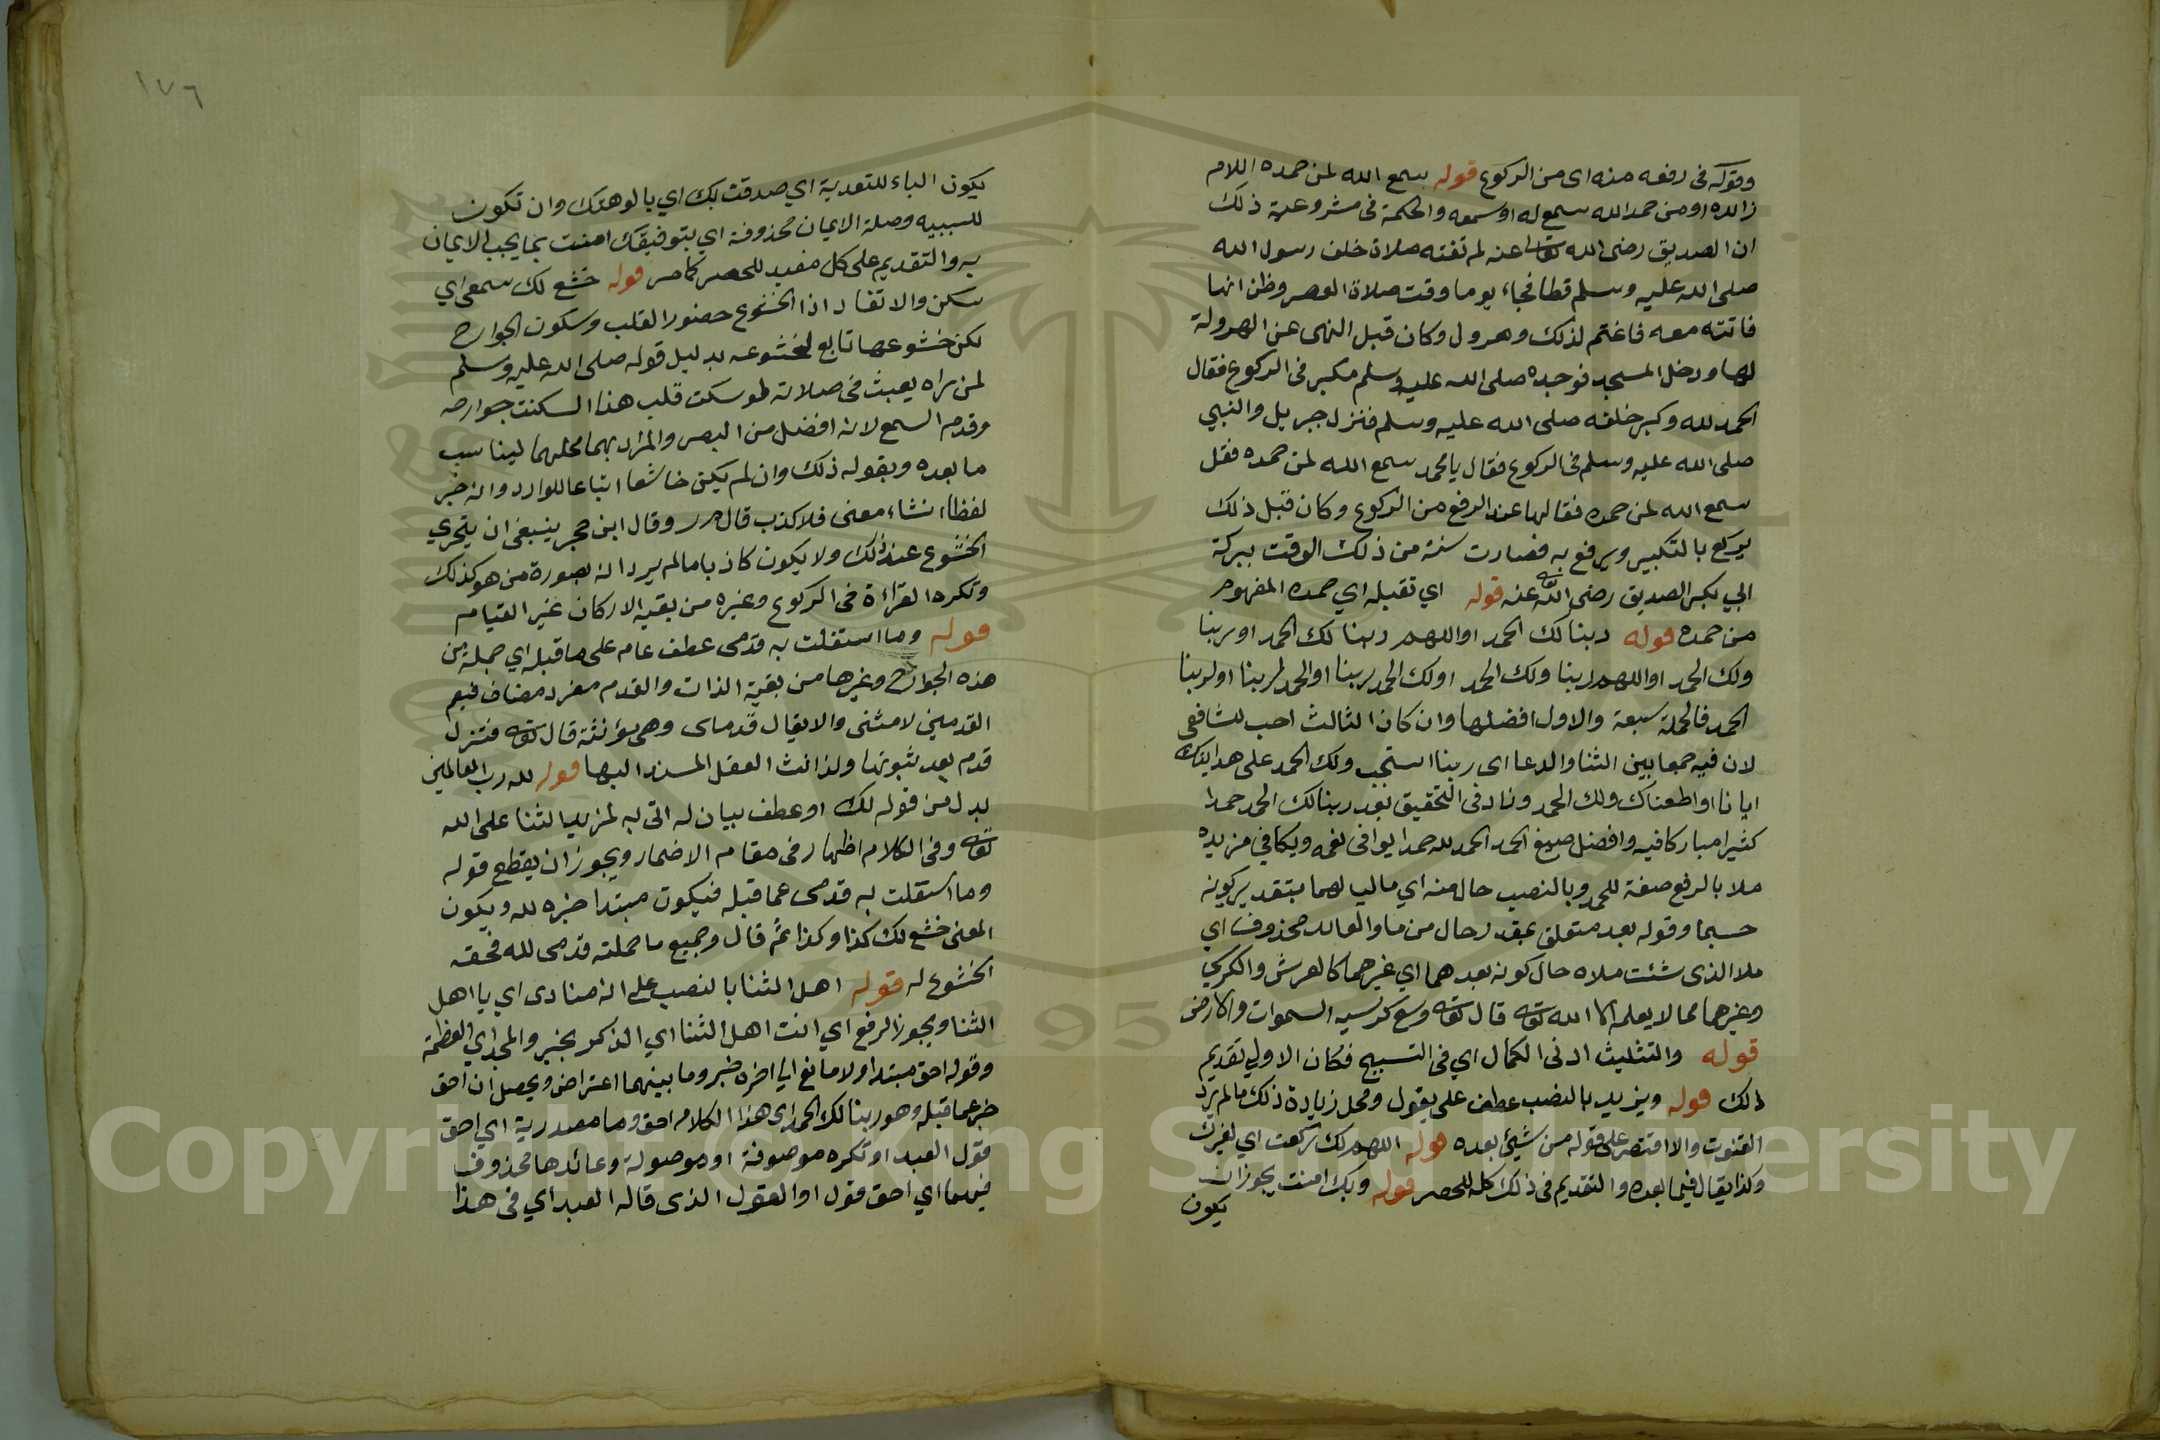 وقوله في رفعه منه اى من الركوع قوله سمع الله لمن حمده اللام
زائدة او من حمد الله سمع له او سمعه والحكمة في مشروعية ذلك
ان الصديق رضى الله تعالى عنه لم تفته صلاة خلف رسول الله
صلى الله عليه وسلم قط فجاء يوما وقت صلاة العصر وظن انها
فاتته معه فاغتم لذلك وهرول وكان قبل النهى عن الهرولة
لها ودخل المسجد فوجده صلى الله عليه وسلم مكبر في الركوع فقال
الحمد لله وكبر خلفه صلى الله عليه وسلم فنزل جبريل والنبي
صلى الله عليه وسلم في الركوع فقال يا محمد سمع الله لمن حمده فقل
سمع الله لمن حمده فقالها عند الرفع من الركوع وكان قبل ذلك
يركع بالتكبير ويرفع به فصارت سنة من ذلك الوقت ببركة
ابي بكر الصديق رضى الله عنه قوله اي تقبله اي حمده المفهوم
من حمده قوله ربنا لك الحمد او اللهم ربنا لك الحمد او ربنا
ولك الحمد او اللهم ربنا ولك الحمد او لك الحمد ربنا او الحمد لربنا او لربنا
الحمد فالجملة سبعة والاول افضلها وان كان الثالث احب للشافعي
لان فيه جمعا بين الثنا والدعا اى ربنا استجب ولك الحمد على هدايتك
ايانا او اطعناك ولك الحمد وزاد في التحقيق بعد ربنا لك الحمد حمدا
كثيرا مباركا فيه وافضل صيغ الحمد الحمد لله حمدا يوافى نعمه ويكافي مزيده
ملا بالرفع صفة للحمد وبالنصب حال منه اي ماليا لهما بتقدير كونه
جسما وقوله بعد متعلق بمقدر حال من ما والعائد محذوف اي
ملا الذى شئت ملاه حال كونه بعدهما اي غيرهما كالعرش والكرسي
وغيرهما مما لا يعلمه الا الله تعالى قال تعالى وسع كرسيه السموات والارض
قوله والتثليث ادنى الكمال اي في التسبيح فكان الاولى تقديم
ذلك قوله ويزيد بالنصب عطف على يقول ومحل زيادة ذلك ما لم يرد
القنوت والا اقتصر على قوله من شيئ بعده قوله اللهم لك ركعت اي لغيرك
وكذا يقال فيما بعده والتقديم في ذلك كله للحصر قوله وبك امنت يجوز ان
يكون
١٧٦
يكون الباء للتعدية اي صدقت بك اي بالوهتك وان تكون
للسببيه وصلة الايمان محذوفة اي بتوفيقك امنت بما يجب الايمان
به والتقديم على كل مفيد للحصر كما مر قوله خشع لك سمعي اي
سكن والانقاد اذا الخشوع حضور القلب وسكون الجوارح
لكن خشوعها تابع لخشوعه بدليل قوله صلى الله عليه وسلم
لمن راه يعبث في صلاته لو سكت قلب هذا لسكنت جوارحه
وقدم السمع لانه افضل من البصر والمراد بهما محلهما ليناسب
ما بعده ويقوله ذلك وان لم يكن خاشعا اتباعا للوارد وانه خبر
لفظا انشاء معنى فلا كذب قال م ر وقال ابن حجر ينبغي ان يتحري
الخشوع عند ذلك ولا يكون كاذبا ما لم يرد انه بصورة من هو كذلك
وتكره القراءة في الركوع وغيره من بقيه الاركان غير القيام
قوله وما استقلت به قدمى عطف عام على ما قبله اي جملة من
هذه الجوارح وغيرها من بقية الذات والقدم مفرد مضاف فيعم
القدمين لا مثنى والا يقال قدماى وهي مؤنثة قال تعالى فتزل
قدم بعد ثبوتها ولذا انث الفعل المسند اليها قوله لله رب العالمين
بدل من قوله لك او عطف بيان له اتى به لمزيد الثنا على الله
تعالى وفي الكلام اظهار في مقام الاضمار ويجوز ان يقطع قوله
وما استقلت به قدمى عما قبله فيكون مبتدا خبره لله ويكون
المعنى خشع لك كذا وكذا ثم قال وجميع ما حملته قدمى لله فحقه
الخشوع له قوله اهل الثنا بالنصب على انه منادى اي يا اهل
الثنا ويجوز الرفع اي انت اهل الثنا اي الذكر بخير والمجد اي العظمة
وقوله احق مبتدا ولا مانع الي اخره خبر وما بينهما اعتراض ويحصل ان احق
خبر عما قبله وهو ربنا لك الحمد اى هذا الكلام احق وما مصدرية اي احق
قول العبد او نكره موصوفة او موصولة وعائدها محذوف
فيهما اي احق قول او القول الذى قاله العبد اي في هذا
Copyright © King Saud University
1957